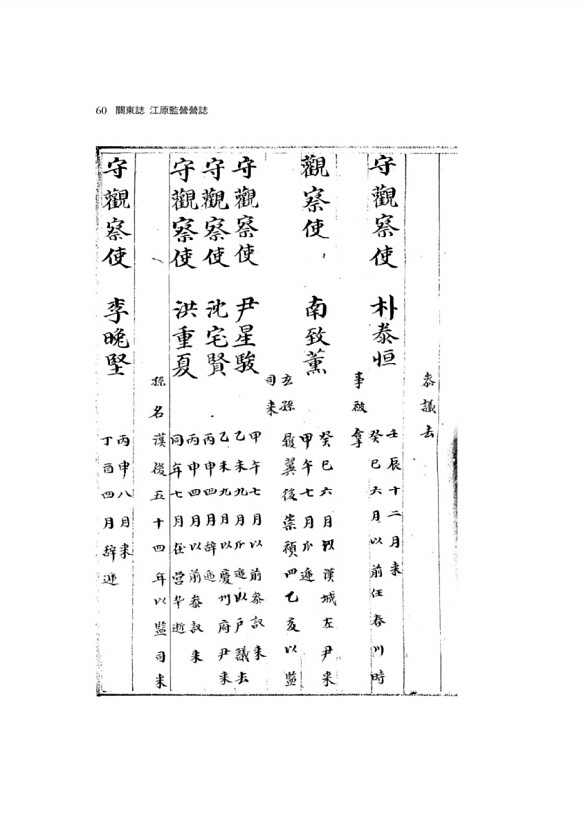 60 關東誌 江原監營營誌
叅議去
守觀察使 朴泰恒 壬辰十二月来
癸巳六月以前任春川時
事被拿
觀察使 南致薰 癸巳六月以漢城左尹来
甲午七月瓜遞
玄孫履翼後崇禎四乙亥以監
司来
守觀察使 尹星駿 甲午七月以前叅議来
乙未九月瓜遞以戶議去
守觀察使 沈宅賢 乙未九月以慶州府尹来
丙申四月辞遞
守觀察使 洪重夏 丙申四月以前叅議来
同年七月在營卒逝
孫名漢後五十四年以監司来
守觀察使 李晚堅 丙申八月来
丁酉四月辞遞